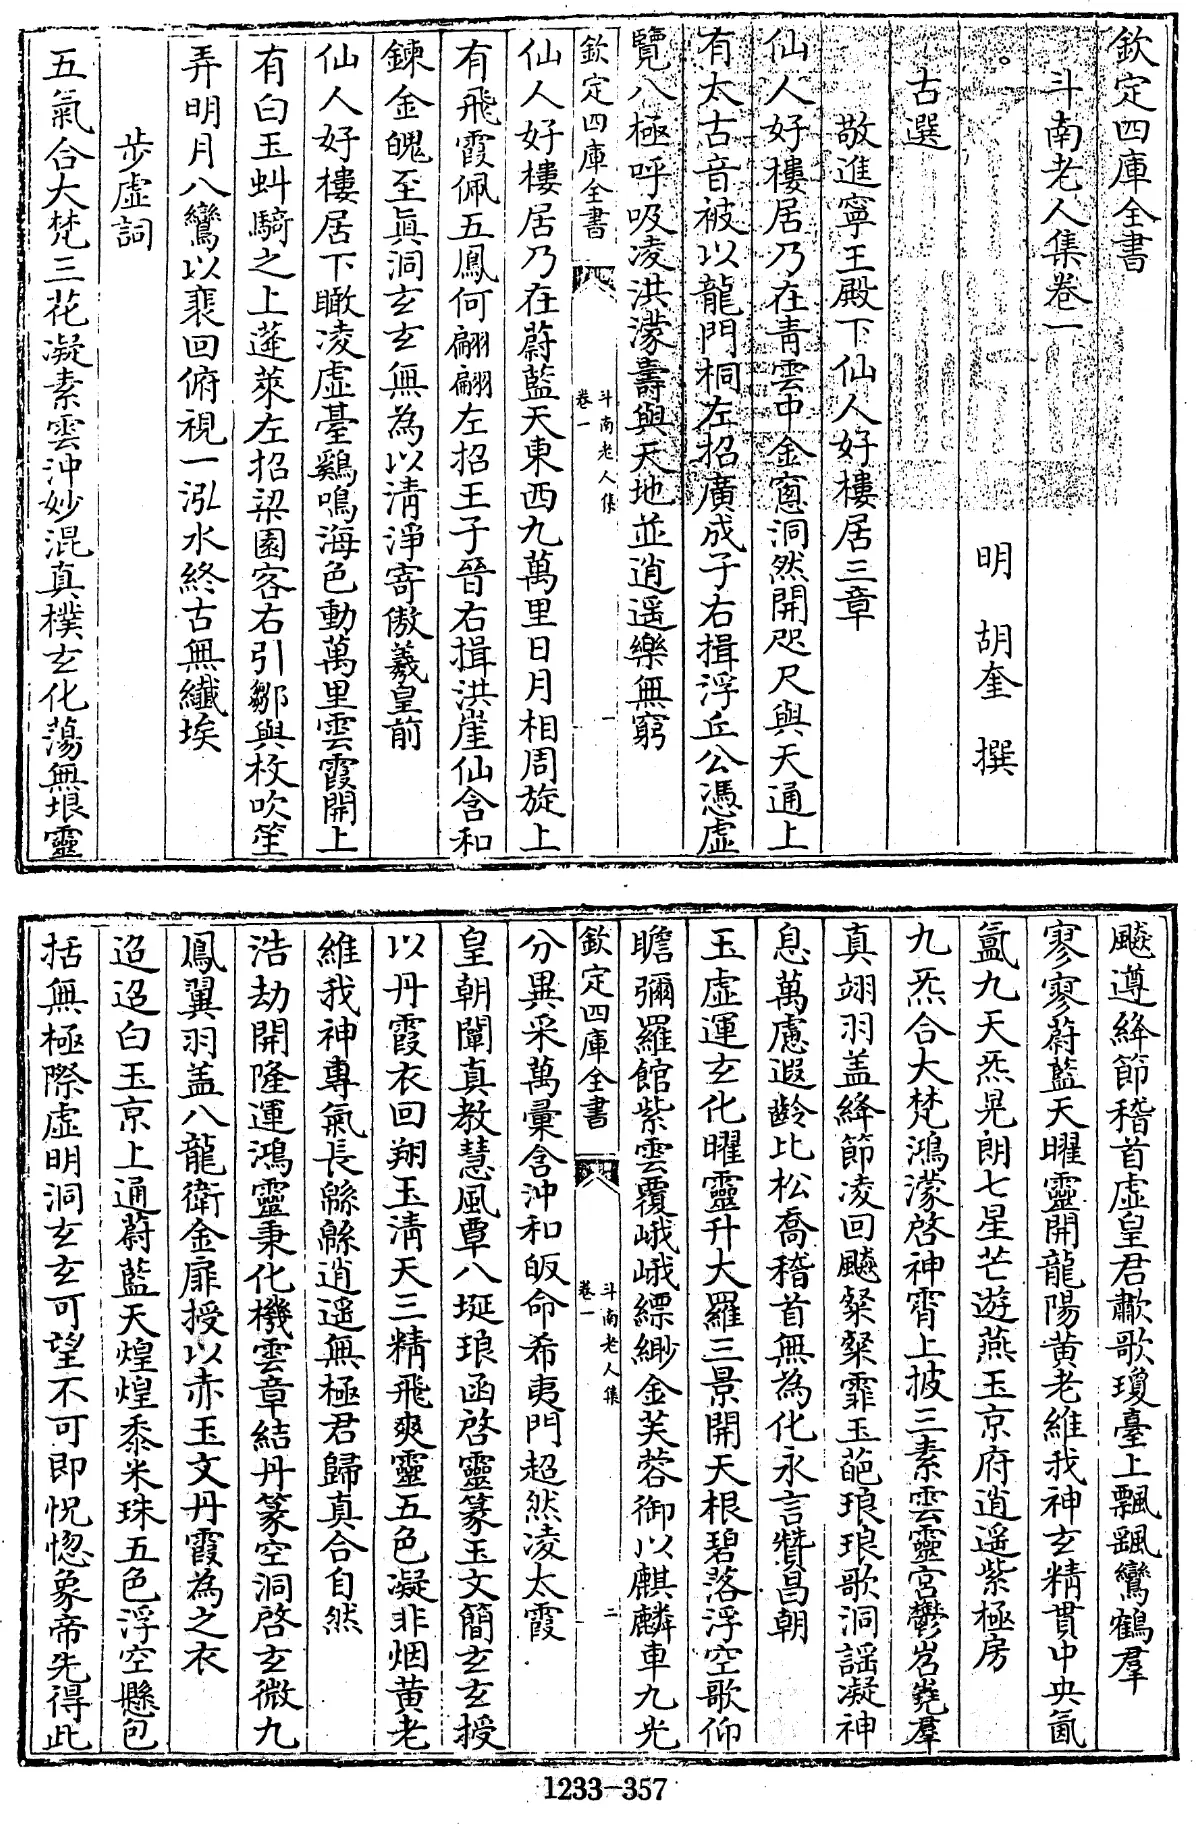 欽定四庫全書
斗南老人集卷一
明 胡奎 撰
古選
敬進寧王殿下仙人好樓居三章
仙人好樓居乃在青雲中金窻洞然開咫尺與天通上
有太古音被以龍門桐左招廣成子右揖浮丘公憑虛
覽八極呼吸凌洪濛壽與天地並逍遥樂無窮
欽定四庫全書
斗南老人集
卷一
一
仙人好樓居乃在蔚藍天東西九萬里日月相周旋上
有飛霞佩五鳳何翩翩左招王子晉右揖洪崖仙含和
鍊金魄至真洞玄玄無為以清淨寄傲羲皇前
仙人好樓居下瞰凌虛臺鷄鳴海色動萬里雲霞開上
有白玉虯騎之上蓬萊左招梁園客右引鄒與枚吹笙
弄明月八鸞以裴回俯視一泓水終古無纖埃
步虛詞
五氣合大梵三花凝素雲沖妙混真樸玄化蕩無垠靈
飈遵絳節稽首虛皇君歗歌瓊臺上飄飄鸞鶴羣
寥寥蔚藍天曜靈開龍陽黄老維我神玄精貫中央氤
氲九天炁晃朗七星芒遊燕玉京府逍遥紫極房
九炁合大梵鴻濛啓神霄上披三素雲靈宫鬱岧嶤羣
真翊羽盖絳節凌回飈粲粲霏玉葩琅琅歌洞謡凝神
息萬慮遐齡比松喬稽首無為化永言贊昌朝
玉虛運玄化曜靈升大羅三景開天根碧落浮空歌仰
瞻彌羅館紫雲覆峨峨縹緲金芙蓉御以麒麟車九光
欽定四庫全書
斗南老人集
卷一
二
分異采萬彙含沖和皈命希夷門超然凌太霞
皇朝闡真教慧風覃八埏琅函啓靈篆玉文簡玄玄授
以丹霞衣回翔玉清天三精飛爽靈五色凝非烟黄老
維我神專氣長緜緜逍遥無極君歸真合自然
浩劫開隆運鴻靈秉化機雲章結丹篆空洞啓玄微九
鳳翼羽盖八龍衛金扉授以赤玉文丹霞為之衣
迢迢白玉京上通蔚藍天煌煌黍米珠五色浮空懸包
括無極際虛明洞玄玄可望不可即怳惚象帝先得此
1233-357